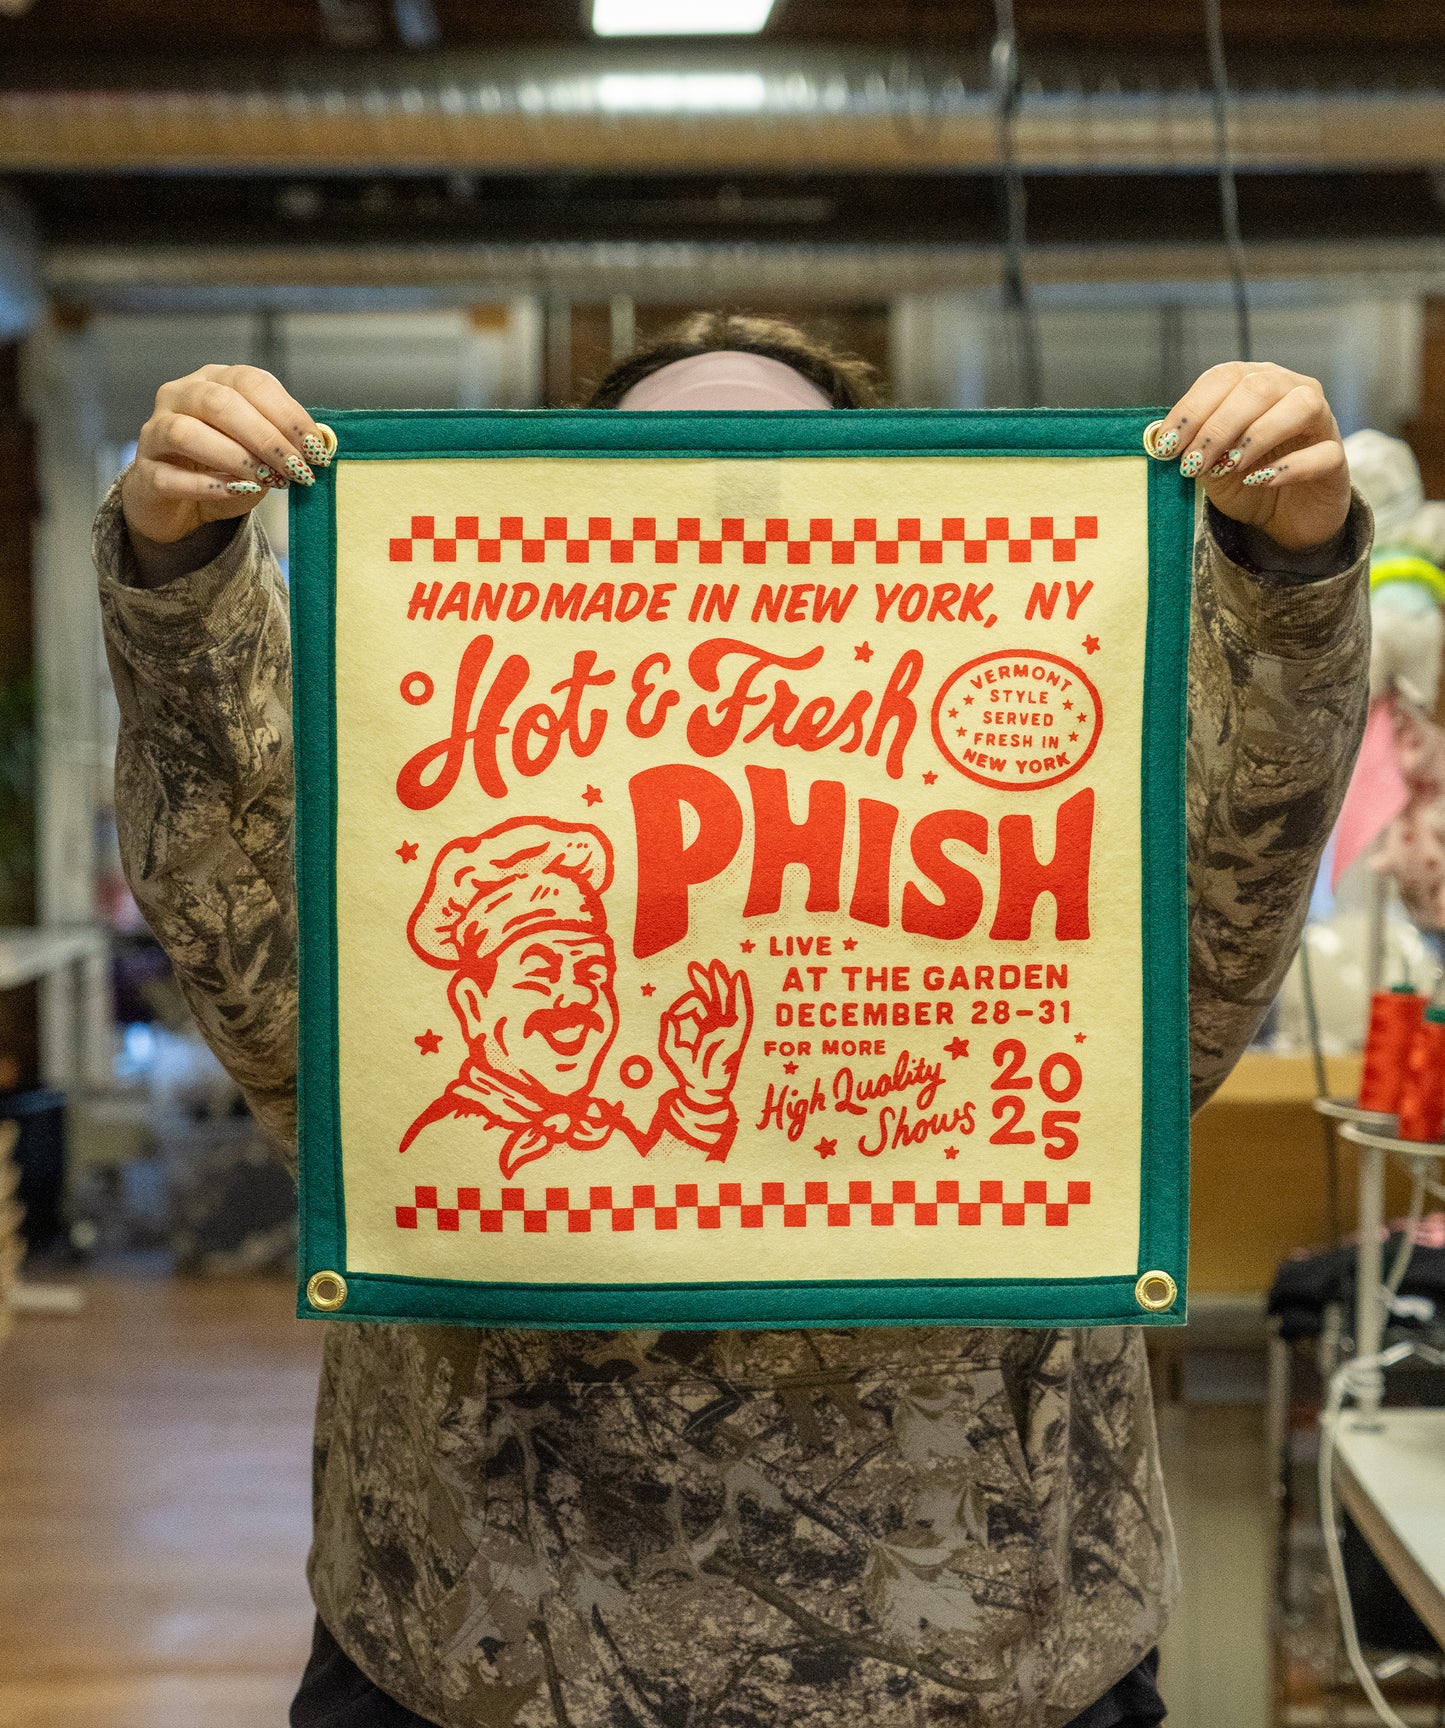 HANDMADE IN NEW YORK, NY
Hot & Fresh
VERMONT
STYLE
SERVED
FRESH IN
NEW YORK
PHISH
LIVE
AT THE GARDEN
DECEMBER 28-31
FOR MORE
High Quality
Shows
20
25